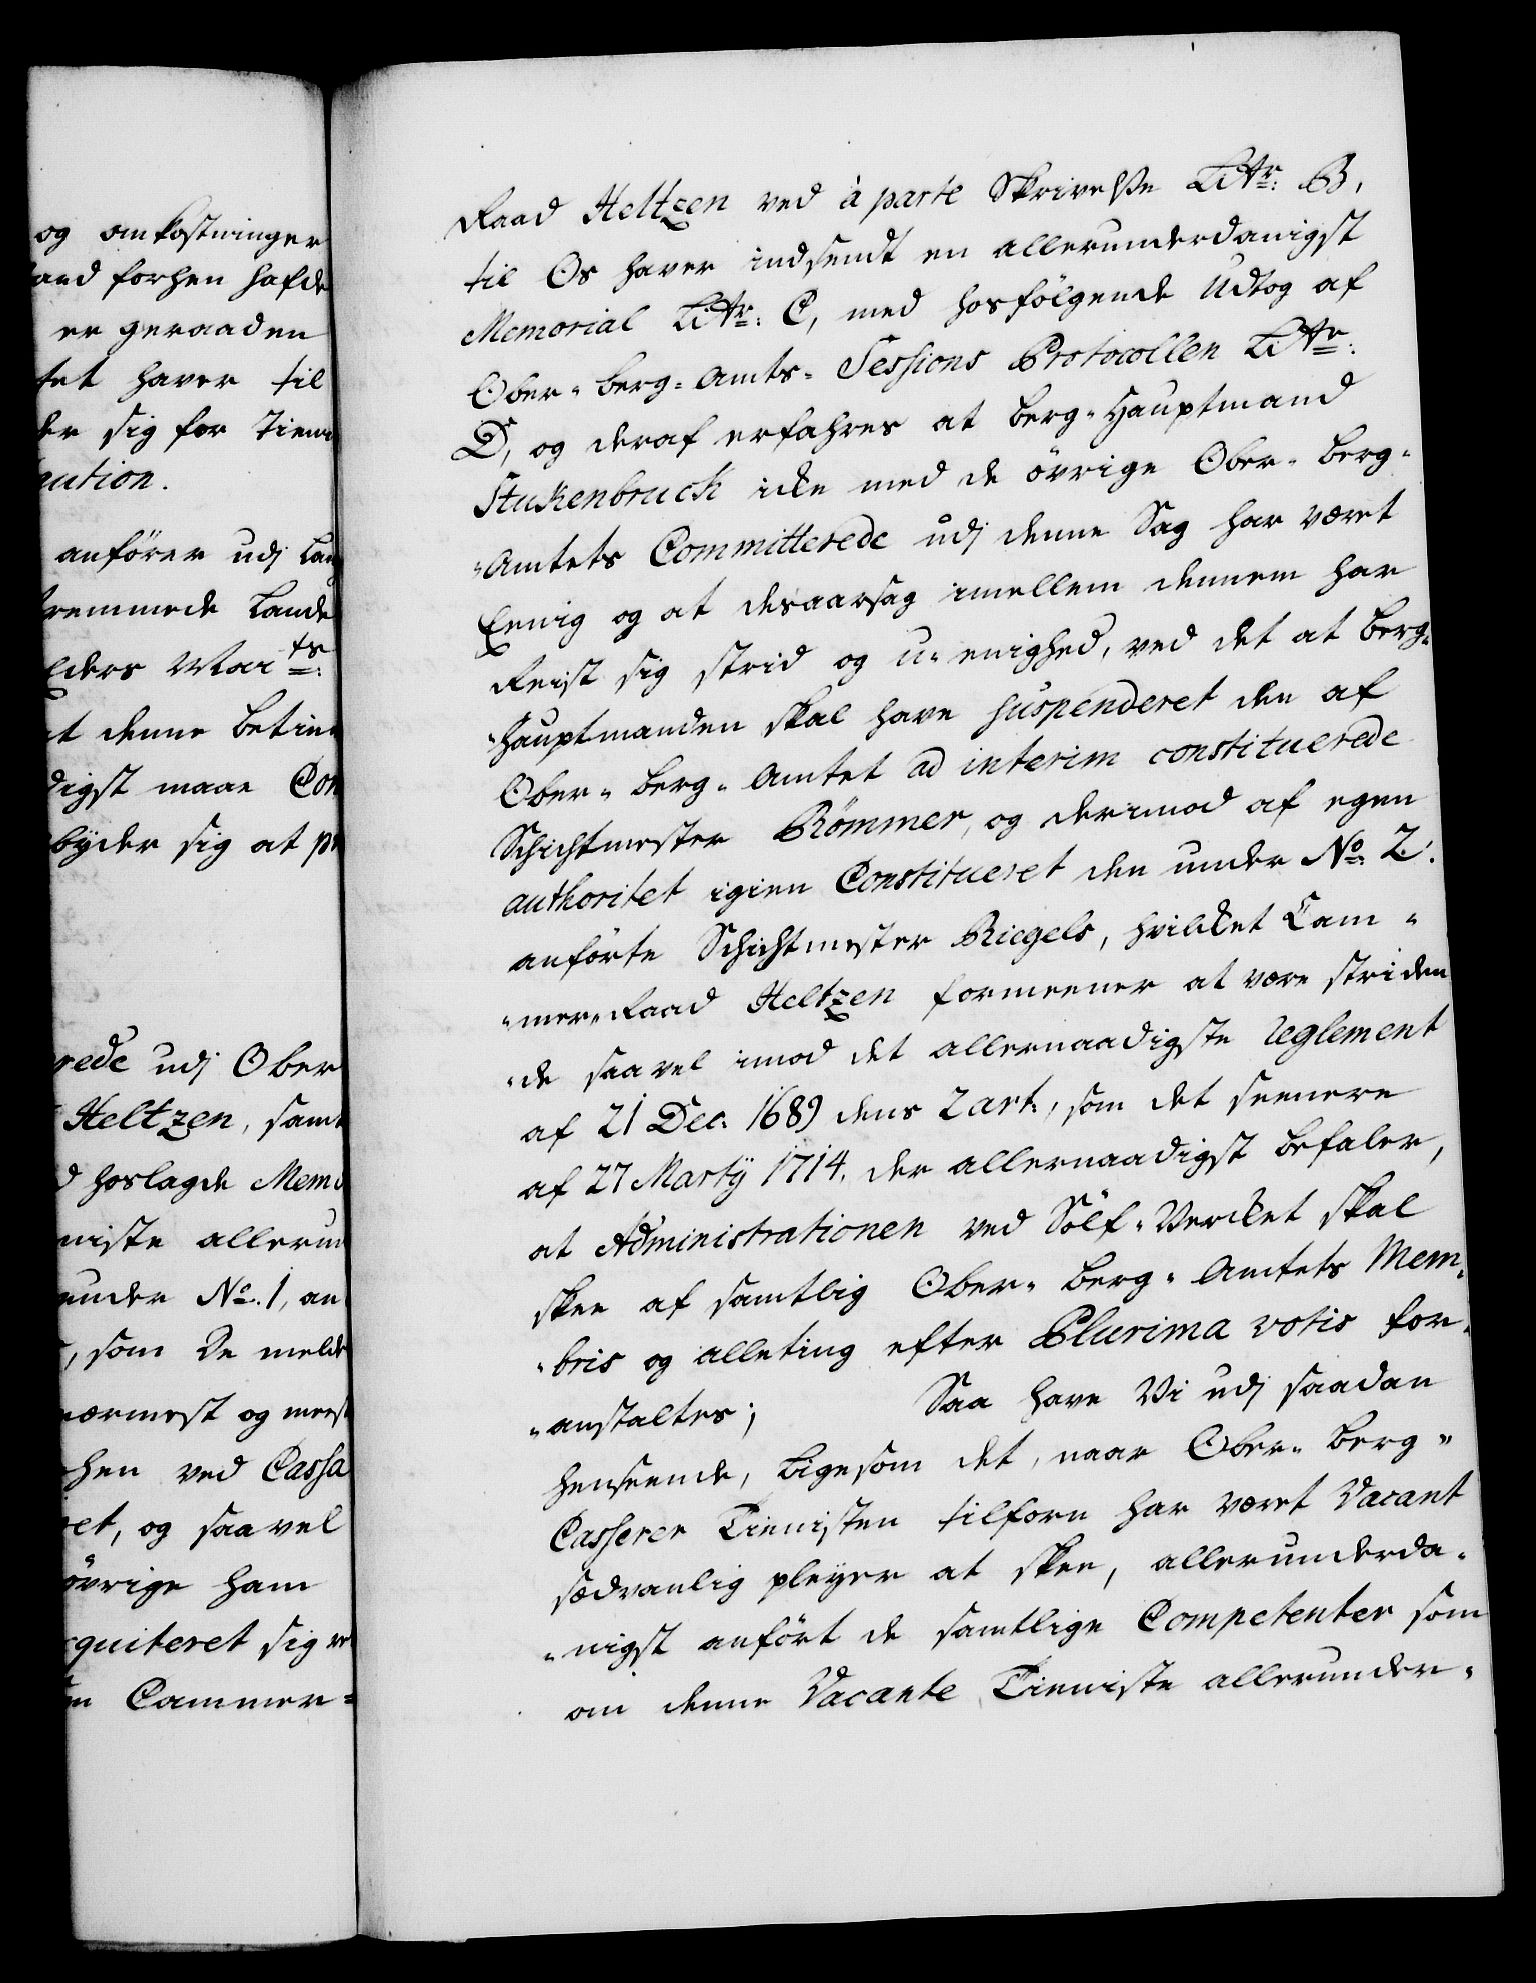 og omkostninger
forhen hafde
er geraaden
haver til
sig for Tienn
aution.
anfører udj
fremmede Lande
denne betien
digst maae Con
byder sig at
rede udj Ober
Heltzen, samt
hoslagde Memo
niste allerun
under No. 1, an
, som De meld
nærmest og meest
hen ved Cassa
et, og saavel
øvrige ham
cquiteret sig
Cammer-
Raad Heltzen ved à parte Skrivelse Littr: B,
til Os haver indsendt en allerunderdanigst
Memorial Littr: C, med hosfölgende Udtog af
Ober-Berg-Amts-Sessions Protocollen Littr:
D, og deraf erfahres at Berg-Hauptmand
Stukenbruck icke med de övrige Ober-Berg-
-Amtets Committerede udj denne Sag har været
Eenig og at desaarsag imellem dennem har
Reist sig strid og u-enighed, ved det at Berg-
-Hauptmanden skal have suspenderet den af
Ober-Berg-Amtet ad interim constituerede
Schichtmester Römmer, og derimod af egen
authoritet igien Constitueret den under No. 2.
anförte Schichtmester Riegels, hvilket Cam-
-mer-Raad Heltzen formeener at være striden
-de saavel imod det allernaadigste Reglement
af 21 Dec. 1689 dens 2 art:, som det seenere
af 27 Martÿ 1714. der allernaadigst befaler,
at Administrationen ved Sölf-Verket skal
skee af samtlig Ober-Berg-Amtets Mem-
-bris og alleting efter Plurima votis for-
-anstaltes; Saa have Vi udj saadan
henseende, ligesom det, naar Ober-Berg-
Casserer Tienisten tilforn har været Vacant
sædvanlig pleyer at skee, allerunderda-
-nigst anfört de samtlige Competenter som
om denne Vacante Tieniste allerunder-